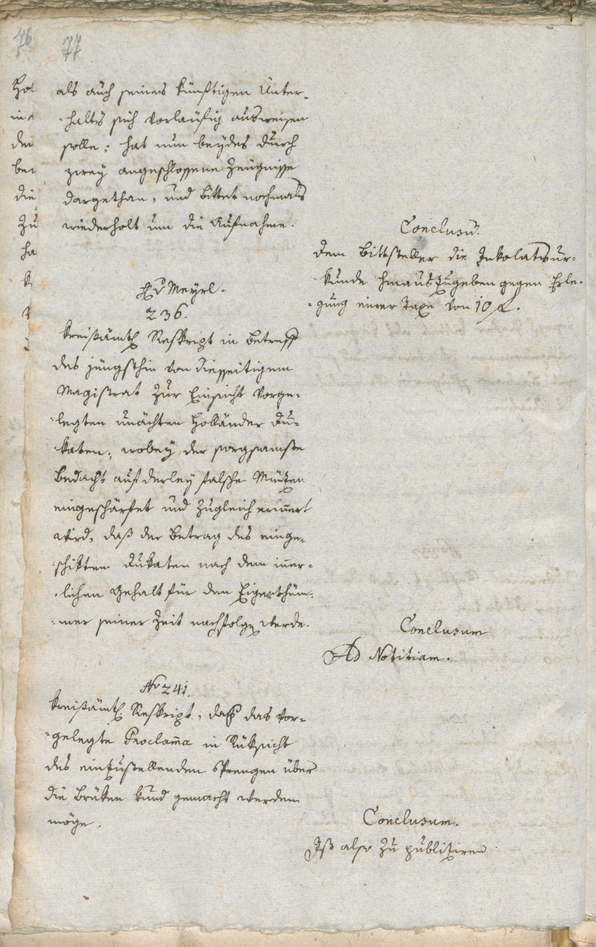 77
als auch seines künftigen Unter-
-halts sich vorläufig ausweisen
solle: hat nun beydes durch
zwey angeschlossene Zeugnisse
dargethan, und bittet nochmals
wiederholt um die Aufnahme.
Conclusū:
dem Bittsteller die Inkolatsur-
-kunde hinauszugeben gegen Erle-
-gung einer Taxe von 10 f.
Meyrl.
236.
Kreisämtl Reskript in Betreff
des jüngsthin von diesseitigem
Magistrat zur Einsicht vorge-
legten unächten Holländer Du-
-katen, wobey der sorgsamste
Bedacht auf derley falsche Münzen
eingeschärfet und zugleich erinnert
wird, daß der Betrag des einge-
-schikten Dukaten nach dem inner-
-lichen Gehalt für den Eigenthüm-
-mer seiner Zeit nachfolgen werde.
Conclusum
Ad Notitiam.
Nº 241.
Kreisämtl Reskript, daß das vor-
-gelegte Proclama in Rüksicht
des einzustellenden Sprengen über
die Brüken kund gemacht werden
möge.
Conclusum.
Ist also zu publiziren
76
Hol
in
den
bei
die
zu
ha